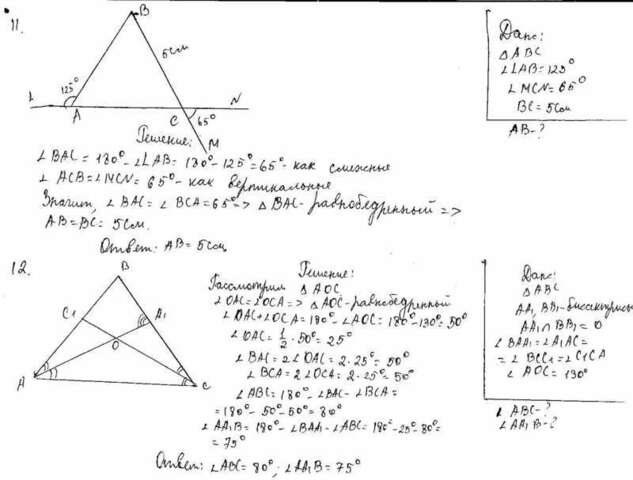 11.
B
5см
125°
L
A
C
65°
N
M
Дано:
△ABC
∠LAB=125°
∠MCN=65°
BC=5см
AB-?
Решение:
∠BAC = 180°-∠LAB= 180°-125°=65°- как смежные
∠ACB=∠MCN= 65°- как вертикальные
Значит, ∠BAC= ∠BCA=65°=> △BAC- равнобедренный =>
AB=BC= 5см.
Ответ: AB= 5см
12.
B
C1
A1
O
A
C
Решение:
Рассмотрим △AOC
∠OAC=∠OCA=> △AOC-равнобедренный
∠OAC+∠OCA=180°-∠AOC=180°-130°=50°
∠OAC=1/2·50°=25°
∠BAC=2∠OAC=2·25°=50°
∠BCA=2∠OCA=2·25°=50°
∠ABC=180°-∠BAC-∠BCA=
=180°-50°-50°=80°
∠AA1B=180°-∠BAA1-∠ABC=180°-25-80°=
=75°
Ответ: ∠ABC=80°; ∠AA1B=75°
Дано:
△ABC
AA1, BB1-биссектрисы
AA1∩BB1=O
∠BAA1=∠A1AC=
=∠BCC1=∠C1CA
∠AOC=130°
∠ABC-?
∠AA1B-?